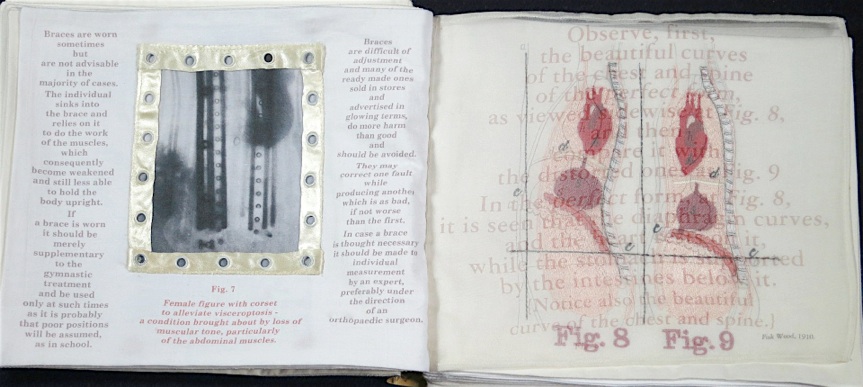 Braces are worn
sometimes
but
are not advisable
in the
majority of cases.
The individual
sinks into
the brace and
relies on it
to do the work
of the muscles,
which
consequently
become weakened
and still less able
to hold the
body upright.
If
a brace is worn
it should be
merely
supplementary
to the
gymnastic
treatment
and be used
only at such times
as it is probably
that poor positions
will be assumed,
as in school.
Fig. 7
Female figure with corset
to alleviate visceroptosis -
a condition brought about by loss of
muscular tone, particularly
of the abdominal muscles.
Braces
are difficult of
adjustment
and many of the
ready made ones
sold in stores
and
advertised in
glowing terms,
do more harm
than good
and
should be avoided.
They may
correct one fault
while
producing another
which is as bad,
if not worse
than the first.
In case a brace
is thought necessary
it should be made to
individual
measurement
by an expert,
preferably under
the direction
of an
orthopaedic surgeon.
Observe, first,
the beautiful curves
of the chest and spine
of the perfect form,
as viewed Fig. 8,
and then
it with
the distorted Fig. 9
In the perfect form, Fig. 8,
it is seen that the diaphragm curves,
and the it,
while the stomach
by the intestines below it.
[Notice also the beautiful
curve of the chest and spine.]
Fig. 8 Fig. 9
1910.